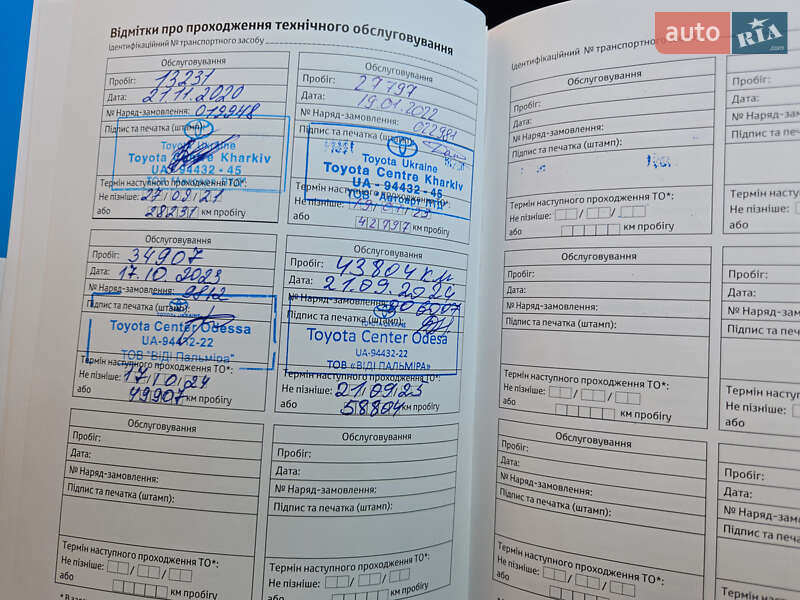 Відмітки про проходження технічного обслуговування
Ідентифікаційний № транспортного засобу
Обслуговування
Пробіг: 13231
Дата: 21.11.2020
№ Наряд-замовлення: 019948
Підпис та печатка (штамп):
Toyota Ukraine
Toyota Centre Kharkiv
UA - 94432 - 45
Термін наступного проходження ТО*:
Не пізніше: 27/09/21
або 28231 км пробігу
Обслуговування
Пробіг: 27797
Дата: 19.01.2022
№ Наряд-замовлення: 022981
Підпис та печатка (штамп):
Toyota Ukraine
Toyota Centre Kharkiv
UA - 94432 - 45
ТОВ "Автоарт ЛТД"
Термін наступного проходження ТО*:
Не пізніше: 19/01/23
або 42797 км пробігу
Обслуговування
Пробіг: 34907
Дата: 17.10.2023
№ Наряд-замовлення: 9812
Підпис та печатка (штамп):
Toyota Center Odessa
UA-94432-22
ТОВ "ВІДІ Пальміра"
Термін наступного проходження ТО*:
Не пізніше: 17/10/24
або 49907 км пробігу
Обслуговування
Пробіг: 43804 км
Дата: 21.09.2024
№ Наряд-замовлення:
Підпис та печатка (штамп):
Toyota Center Odesa
UA-94432-22
ТОВ «ВІДІ ПАЛЬМІРА»
Термін наступного проходження ТО*:
Не пізніше: 21/09/25
або 58804 км пробігу
Обслуговування
Пробіг:
Дата:
№ Наряд-замовлення:
Підпис та печатка (штамп):
Термін наступного проходження ТО*:
Не пізніше:
або км пробігу
Обслуговування
Пробіг:
Дата:
№ Наряд-замовлення:
Підпис та печатка (штамп):
Термін наступного проходження ТО*:
Не пізніше:
або км пробігу
Ідентифікаційний № транспортного
Обслуговування
Пробіг:
Дата:
№ Наряд-замовлення:
Підпис та печатка (штамп):
Термін наступного проходження ТО*:
Не пізніше:
або км пробігу
Обслуговування
Пробіг:
Дата:
№ Наряд-замовлення:
Підпис та печатка (штамп):
Термін наступного проходження ТО*:
Не пізніше:
або км пробігу
Обслуговування
Пробіг:
Дата:
№ Наряд-замовлення:
Підпис та печатка (штамп):
Термін наступного проходження ТО*:
Не пізніше:
або км пробігу
Пробіг:
Дата:
№ Наряд-з
Підпис та печ
Термін наст
Не пізніше:
або
Пробіг:
Дата:
№ Наряд-зам
Підпис та печа
Термін насту
Не пізніше:
або
Пробіг:
Дата:
№ Наряд-замо
Підпис та печатк
Термін наступ
Не пізніше:
або
auto RIA .com